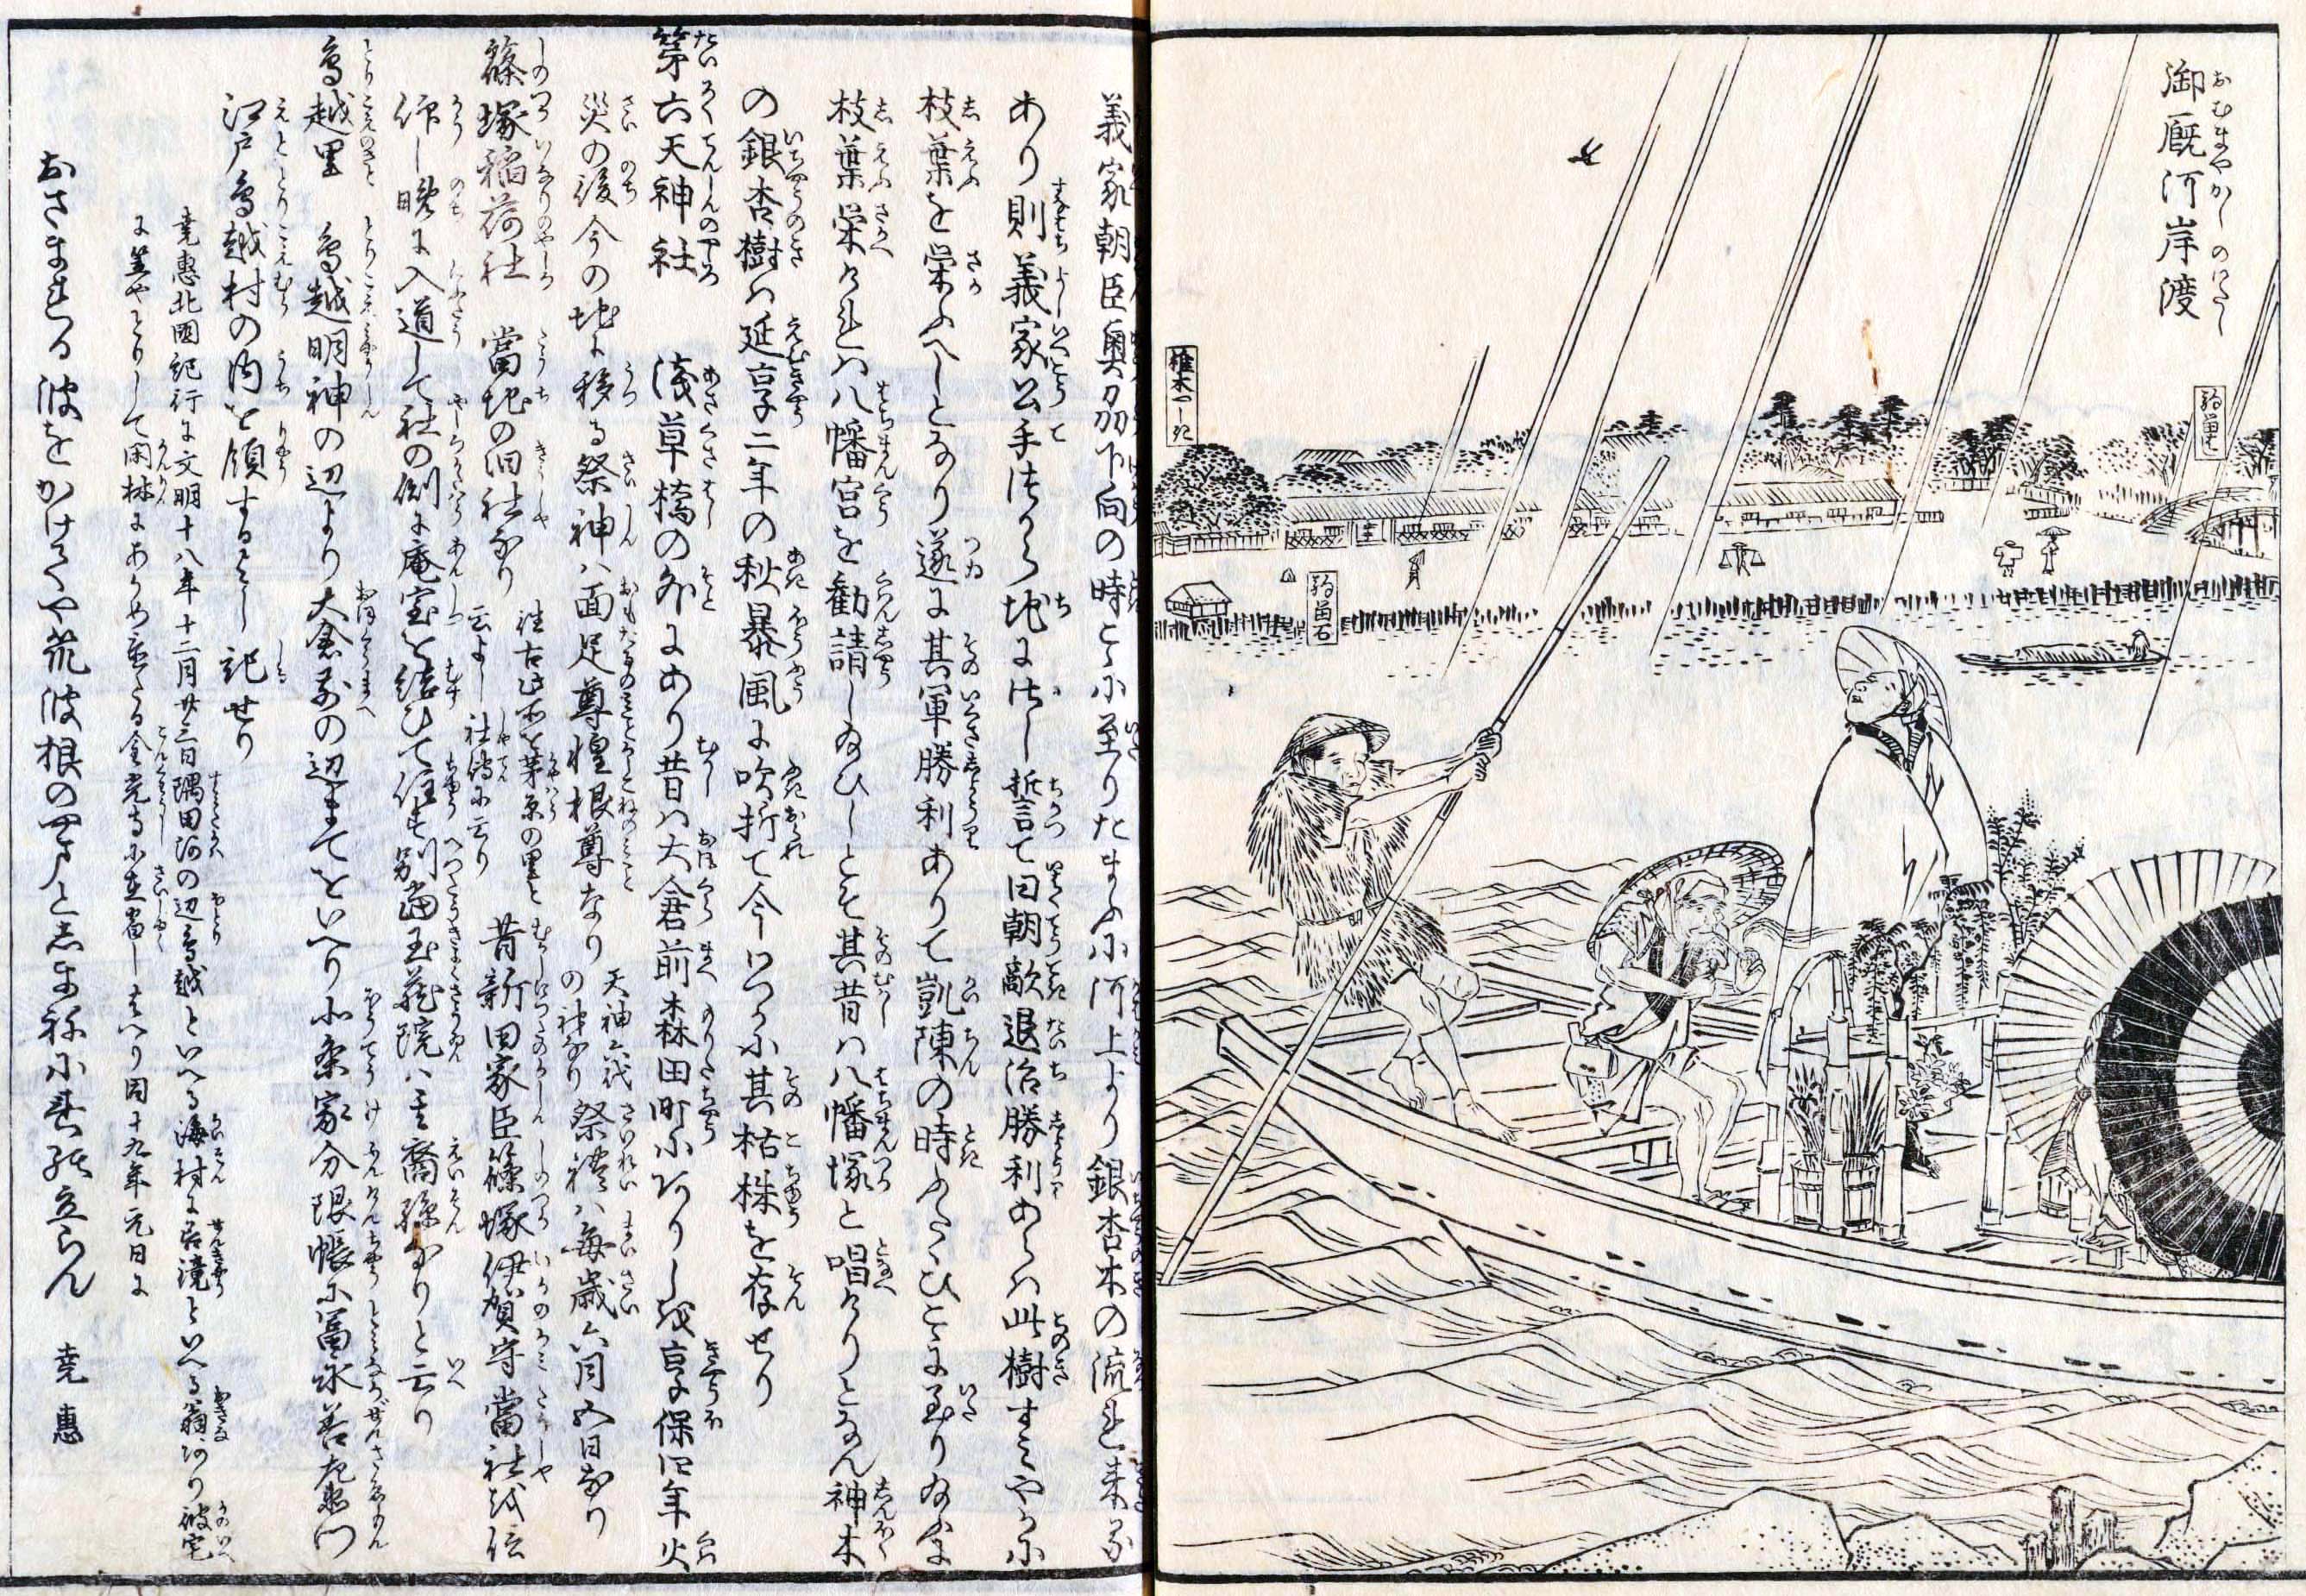 御厩河岸渡
おむまやかしのわたし
駒留石
椎木やしき
義家朝臣奥刕下向の時こゝに至りたまふに河上より銀杏木の流れ来る
あり則義家公手つから地にさし誓て曰朝敵退治勝利あらは此樹すみやかに
枝葉を栄ふへしとなり遂に其軍勝利ありて凱陳の時ふたゝひこゝに至り給ふに
枝葉栄けれは八幡宮を勧請し給ひしとそ其昔は八幡塚と唱けりとなん神木
の銀杏樹は延享二年の秋暴風に吹折て今わつかに其枯株を存せり
第六天神社　浅草橋の外にあり昔は大倉前森田町にありしを享保四年火
災の後今の地に移る祭神は面足尊惶根尊なり
天神六代の神なり
祭禮は毎歳六月五日なり
篠塚稲荷社　當地の旧社なり
往古此所を茅原の里と云よし社傳に云り
昔新田家臣篠塚伊賀守當社を信
仰し晩に入道して社の側に庵室を結ひて住す別當玉蔵院は其裔孫なりと云り
鳥越里　鳥越明神の辺より大倉前の辺まてをいへり小条家分限帳に冨永善左衛門
江戸鳥越村の内を領するよし記せり
尭惠北國紀行に文明十八年十二月廿三日隅田河の辺鳥越といへる海村に善鏡といへる翁あり彼宅
に笠やとりして閑林にあらめ
る金光寺に在宿しはへり同十九年元日に
おさまれる波をかけてや筑波根の
尭惠